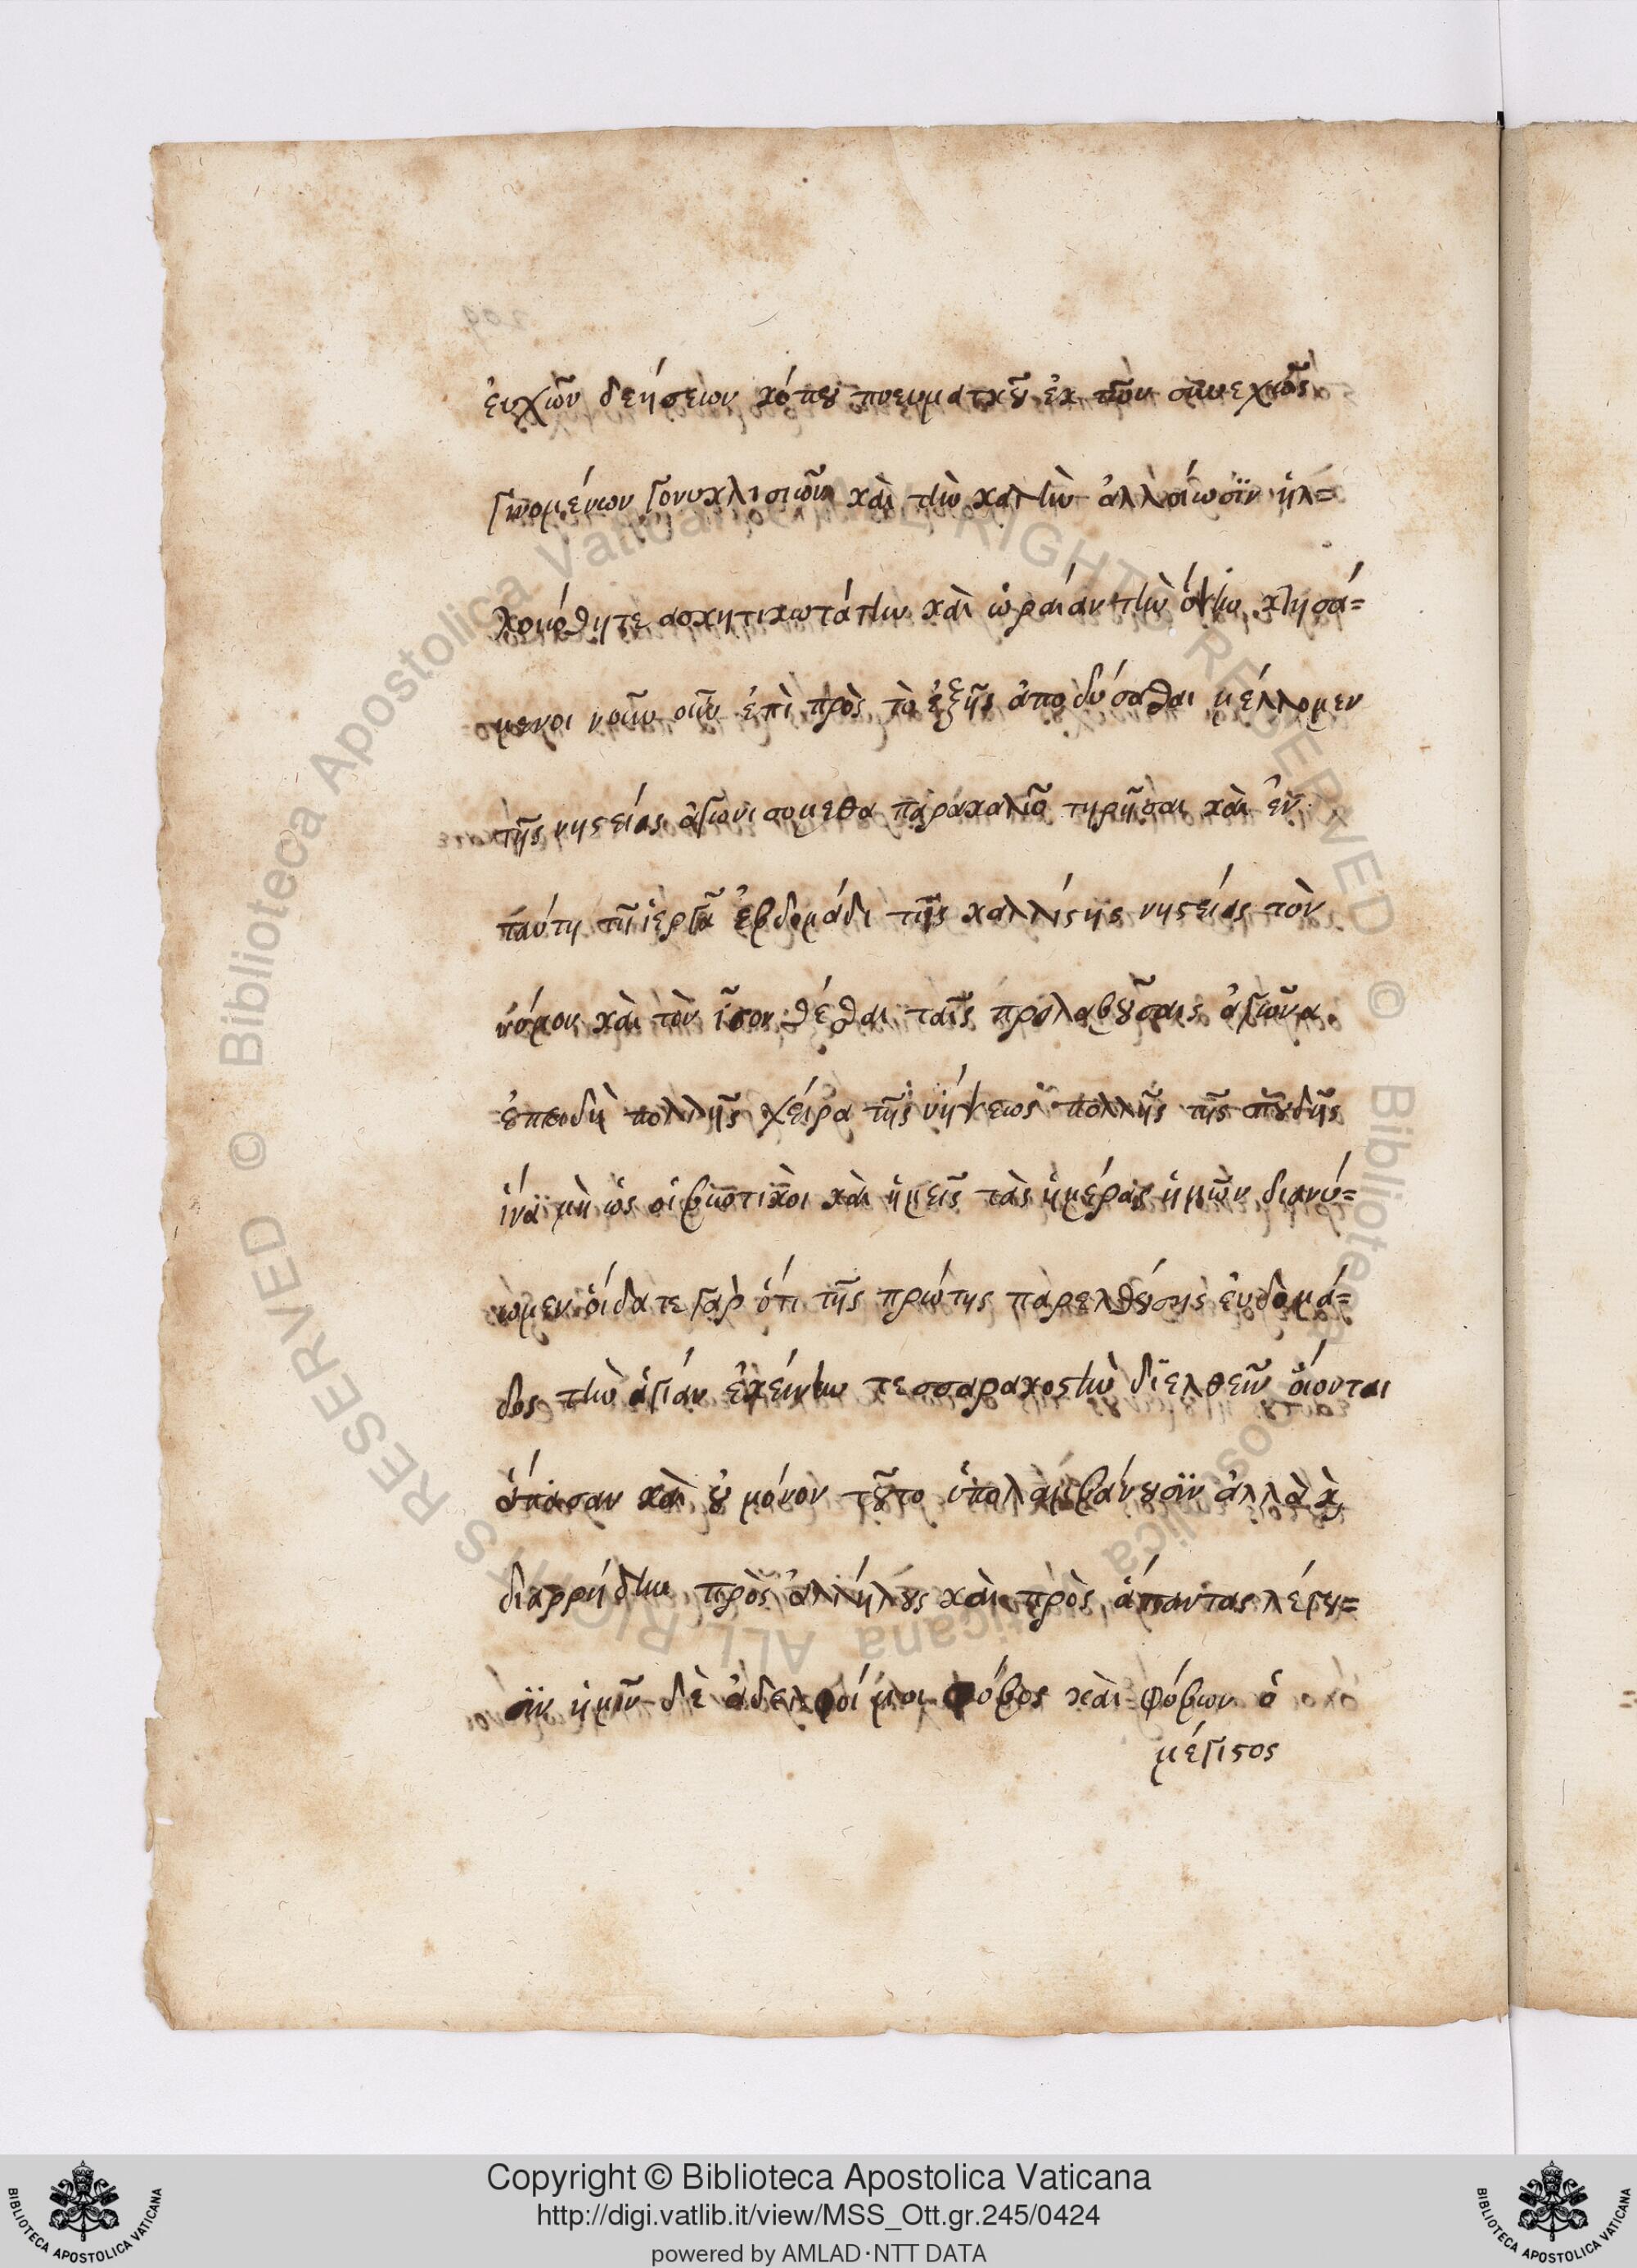 ἐυχῶν δεήσεων κόπου πνευματικοῦ ἐκ τῶν συνεχῶς
γινομένων γονυκλισιῶν καὶ τὴν καλὴν ἀλλοίωσιν ἠλ=
λοιώθητε ασκητικωτάτην καὶ ὡραίαν τὴν ὄψιν κτησά=
μενοι νοῦν οὖν ἐπὶ πρὸς τὸ ἑξῆς ἀποδύσασθαι μέλλομεν
τῆς νηστείας ἀγωνισομεθα παρακαλῶ τηρῆσαι καὶ ἐν
ταύτη τῆ ἱερᾶ ἑβδομάδι τῆς καλλίστης νηστείας τὸν
νόμον καὶ τὸν ἴσον θέσθαι ταῖς προλαβούσαις ἀγῶνα
ἐπειδὴ πολλῆς χεῖρα τῆς νήψεως πολλῆς τῆς σπουδῆς
ἱνα μὴ ὡς οἱ βιωτικοι καὶ ἡμεῖς τὰς ἡμέρας ἡμῶν διανύ=
ωμεν οἴδατε γὰρ ὅτι τῆς πρώτης παρελθούσης ἑυδομά=
δος τὴν ἁγίαν ἐκείνην τεσσαρακοστὴν διελθεῖν οἴονται
ἅπασαν καὶ οὐ μόνον τοῦτο ὑπολαμβάνουσιν ἀλλὰ κὶ
διαρρήδην πρὸς ἀλλήλους καὶ πρὸς ἅπαντας λέγου=
σιν ἡμῖν δὲ ἀδελφοί μοι φόβος καὶ φόβων ὁ
μέγιστος
Copyright © Biblioteca Apostolica Vaticana
http://digi.vatlib.it/view/MSS_Ott.gr.245/0424
powered by AMLAD·NTT DATA
BIBLIOTECA APOSTOLICA VATICANA
BIBLIOTECA APOSTOLICA VATICANA
© Biblioteca Apostolica Vaticana ALL RIGHTS RESERVED © Biblioteca Apostolica Vaticana ALL RIGHTS RESERVED